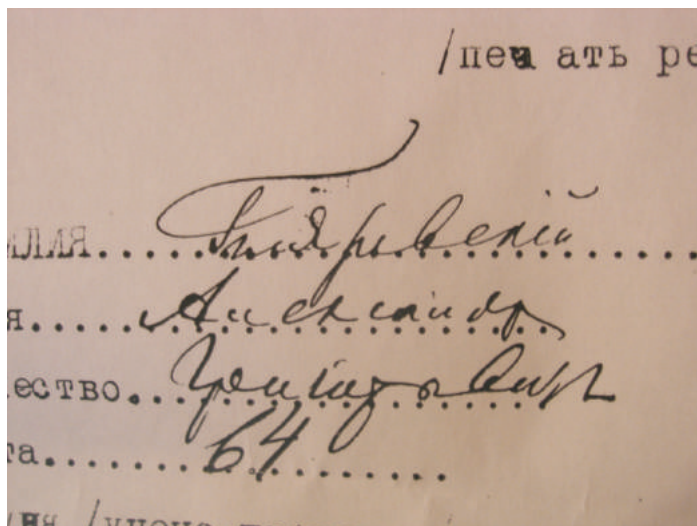 /печать ре
илия
я Александр
ество Григорьевич
та 64